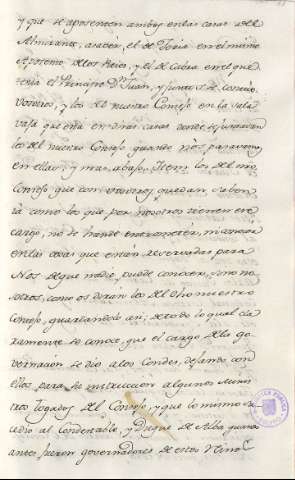 y que se aposenten ambos en las casas del
Almirante, a saber, el de Soria en el mismo
Aposento de los Reies, y el de Cabra en el que
tenia el Principe Dn. Juan, y juntos de con
vosotros, y los del nuestro Consejo en la sala
vaja que está en dichas casas donde se juntavan
los del nuestro Consejo quando nos posavamos
en ellas; y mas abajo: Item los del mio
Consejo que con vosotros quedan, saben
asi como los que por nosotros tienen ese
cargo, no se han de entrometer, ni conocer
en las cosas que están reservadas para
Nos de que nadie puede conocer, sino no
sotros, como os dirán los del dho nuestro
Consejo, guardandolo asi; de todo lo qual cla
ramente se conoce que el cargo de la go
vernación se dio a los Condes, dejando con
ellos para su instruccion algunos Minis
tros togados del Consejo, y que lo mismo su
cedio al Condestable, y Duque de Alba quando
antes fueron governadores de estos Reinos